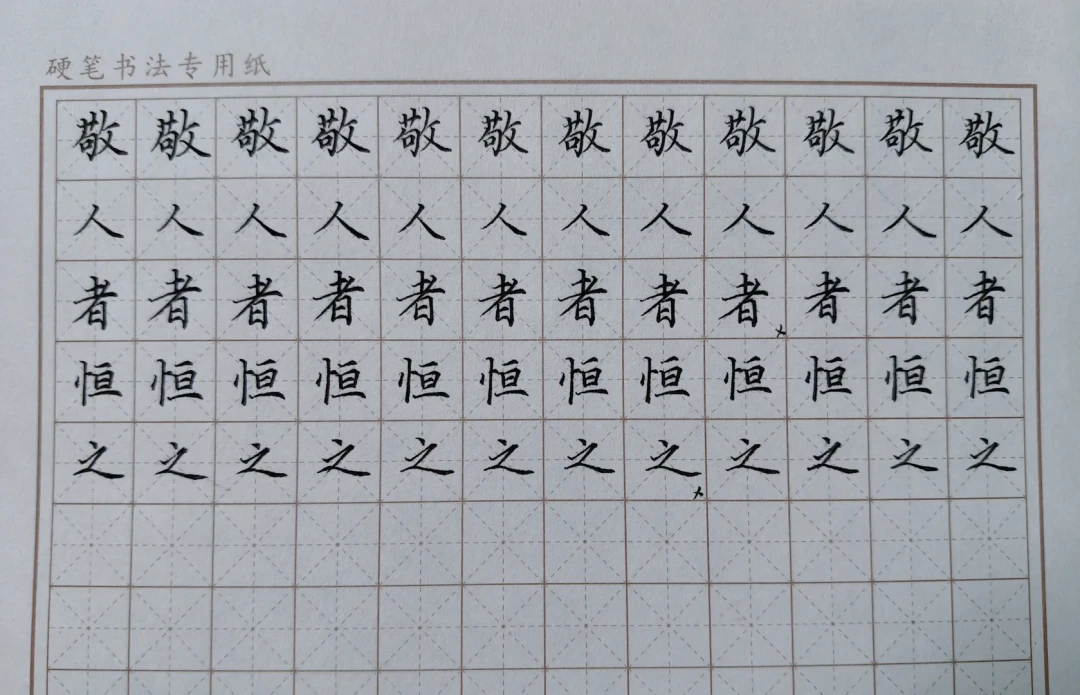 硬笔书法专用纸
敬敬敬敬敬敬敬敬敬敬敬敬
人人人人人人人人人人人人
者者者者者者者者者者者者
恒恒恒恒恒恒恒恒恒恒恒恒
之之之之之之之之之之之之